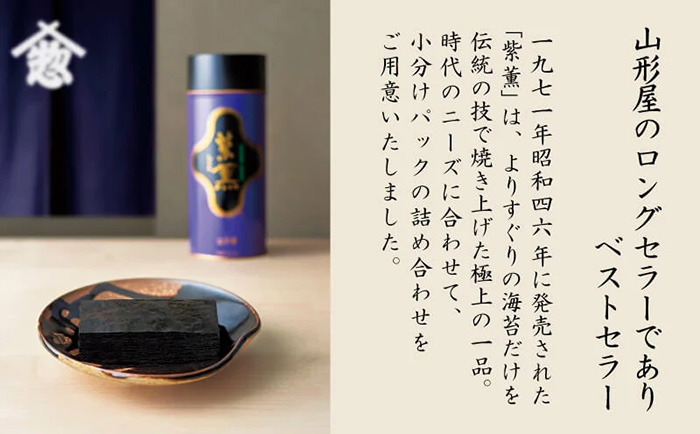 山形屋のロングセラーであり
ベストセラー
一九七一年昭和四六年に発売された
「紫薫」は、よりすぐりの海苔だけを
伝統の技で焼き上げた極上の一品。
時代のニーズに合わせて、
小分けパックの詰め合わせを
ご用意いたしました。
惣
紫薫